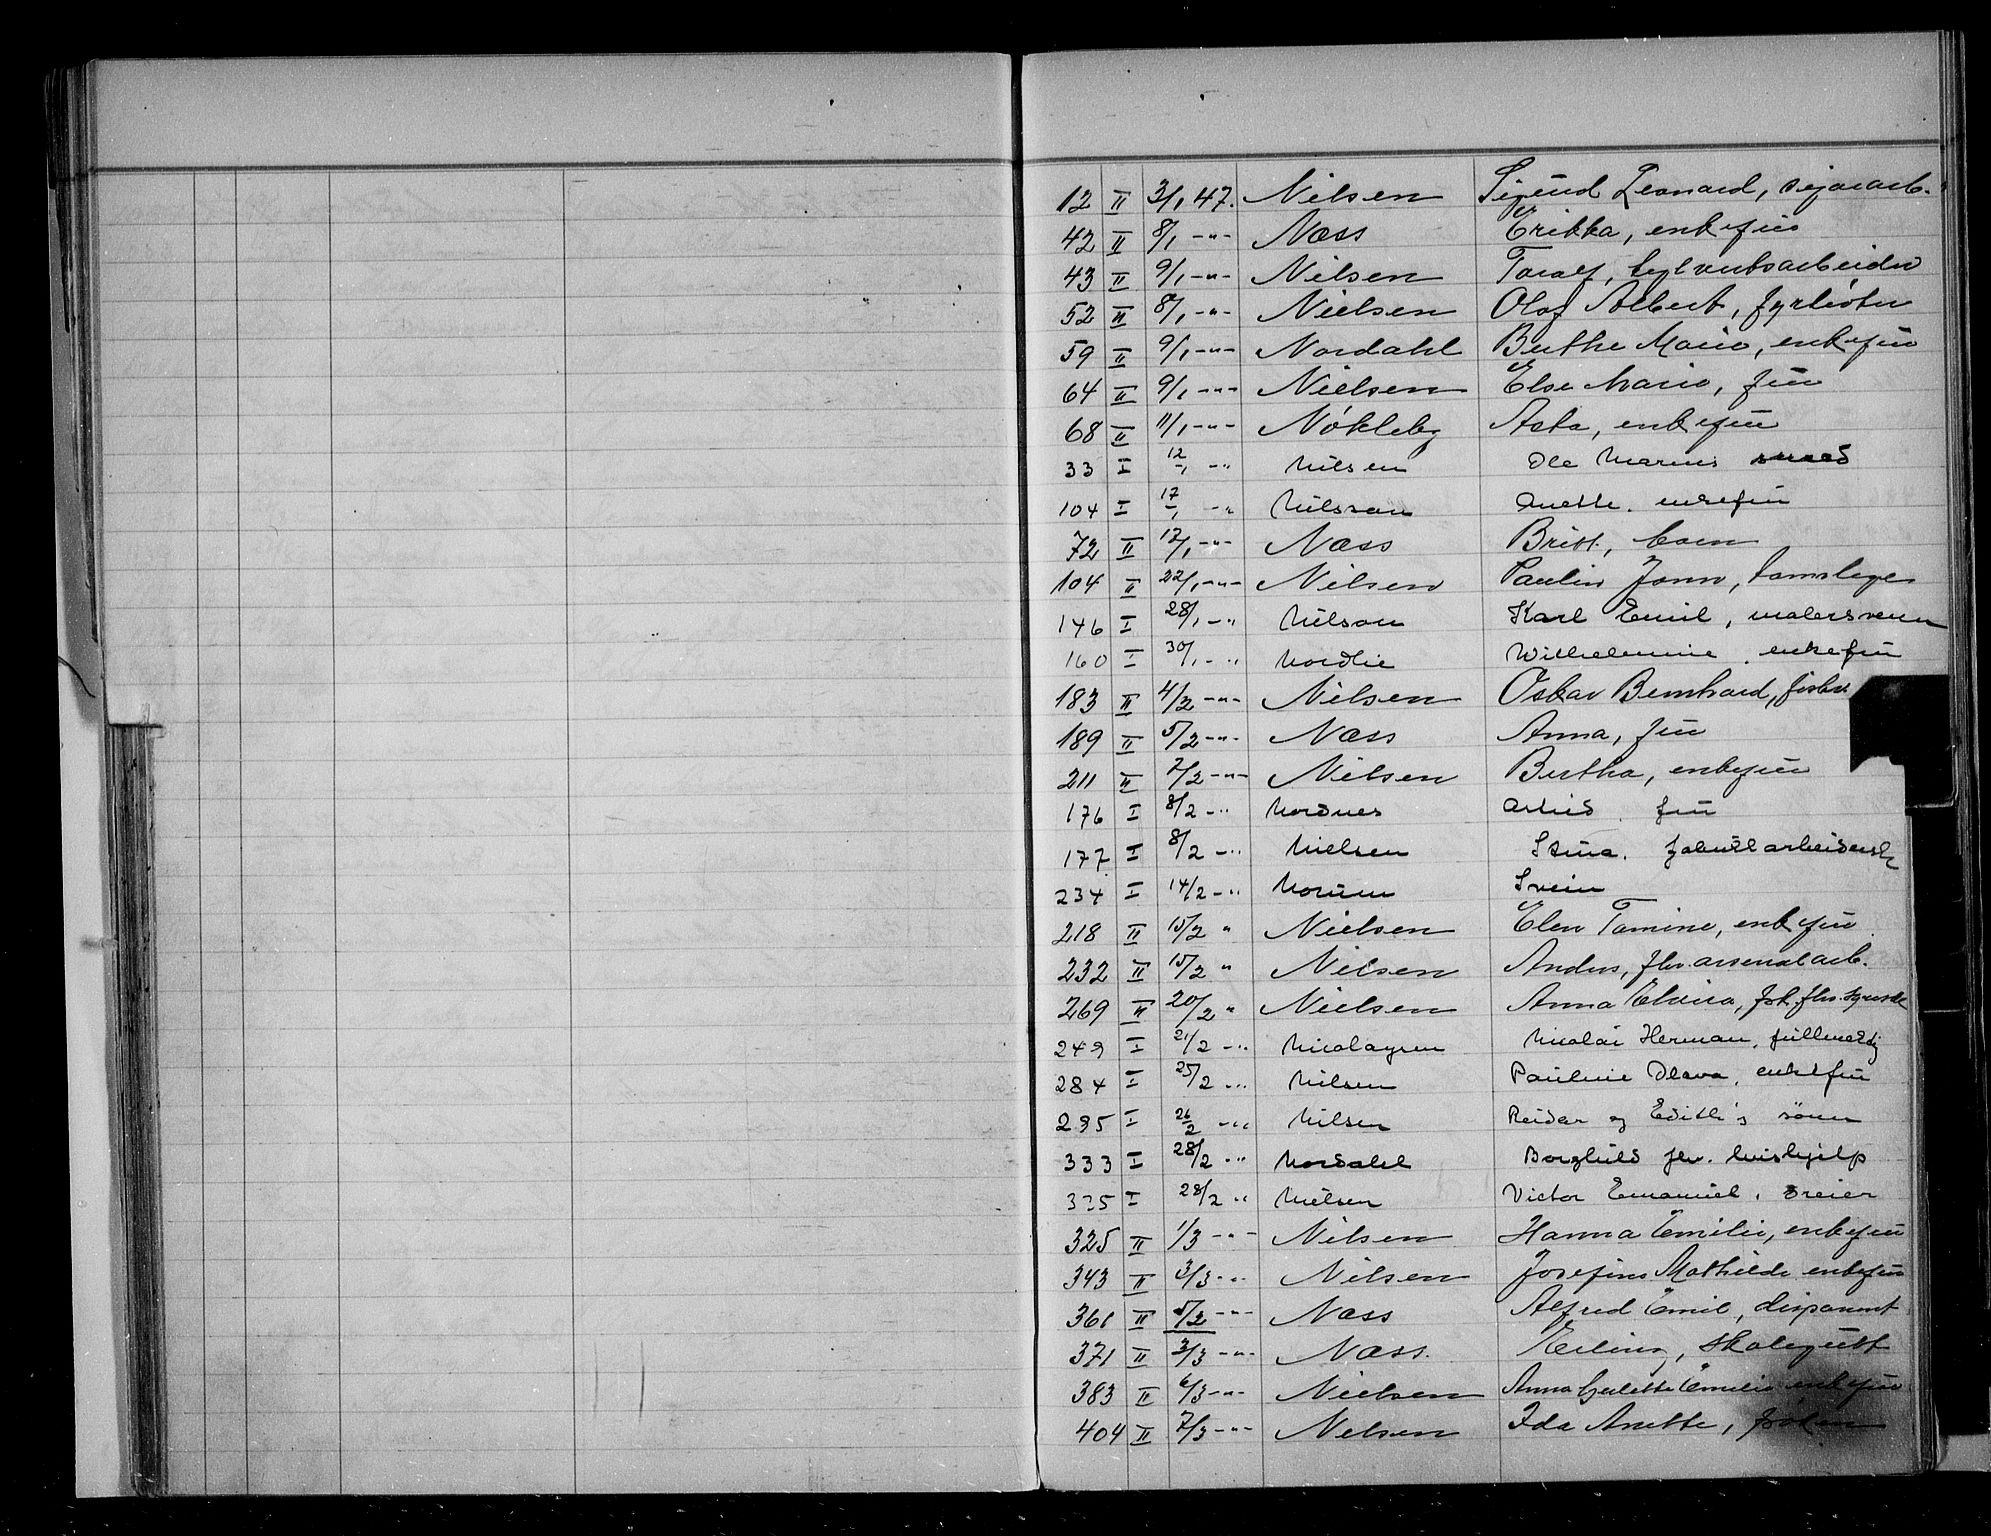 12 II 3/1 47. Nilsen Sigurd Leonard, sigararb.
42 II 8/1 -"- Næss Erikka, enkefru
43 II 9/1 -"- Nilsen Toralf, teglverksarbeider
52 II 8/1 -"- Nielsen Olaf Albert, fyrbøter
59 II 9/1 -"- Nordahl Berthe Marie, enkefru
64 II 9/1 -"- Nielsen Else Marie, fru
68 II 11/1 -"- Nøkleby Asta, enkefru
33 I 12/1 -" Nilsen Ole Marius smed
104 I 17/1 -" Nilsson Anette. enkefru
72 II 12/1 -"- Næss Britt, barn
104 II 22/1 -"- Nilsen Paulin Jonn, tømslager
146 I 28/1 -" Nilson Karl Emil, malersvenn
160 I 30/1 -" Nordlie Wilhelmine. enkefru
183 II 4/2 -"- Nielsen Oskar Bernhard,
189 II 5/2 -"- Næss Anna, fru
211 II 7/2 -"- Nilsen Bertha, enkefru
176 I 8/2 -" Nordnes Astrid. fru
177 I 8/2 -" Nielsen Stina. fabrikkarbeiderske
234 I 14/2 -" Norum Svein
218 II 15/2 " Nielsen Elen Tomine, enkefru
232 II 15/2 " Nilsen Anders, fhv. arsenalarb.
269 II 20/2 " Nielsen Anna Elvira, frk. fhv. syerske
249 I 21/2 -" Nicolaysen Nicolai Herman, fullmektig
284 I 25/2 -" Nilsen Pauline Olava, enkefru
295 I 26/2 -" Nilsen Reidar og Edith's sønn
333 I 28/2 -" Nordahl Borghild fhv. hushjelp
335 I 28/2 " Nielsen Victor Emanuel, dreier
325 II 1/3 -"- Nilsen Hanna Emilie, enkefru
343 II 3/3 -"- Nilsen Josefine Mathilde enkefru
361 II 5/2 -"- Næss Alfred Emil, disponent
371 II 3/3 -"- Næss. Erling, skolegutt
383 II 6/3 -"- Nielsen Anna Emilie enkefru
404 II 7/3 -"- Nilsen Ida Anette, frøken